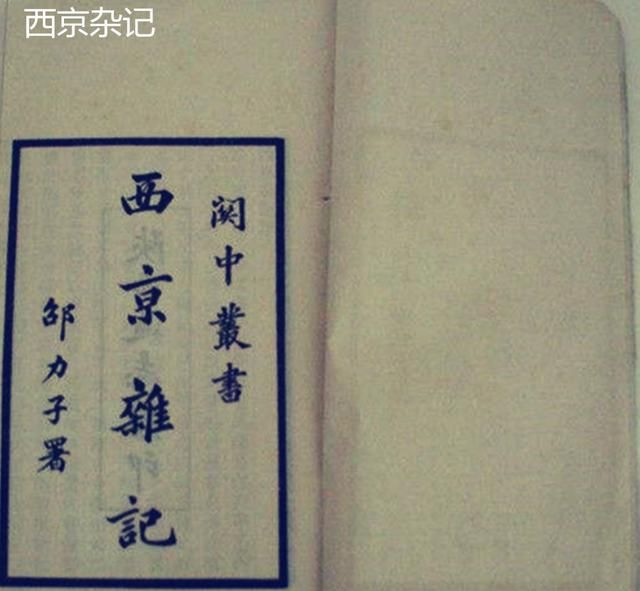 西京杂记
關中叢書
西京雜記
邵力子署